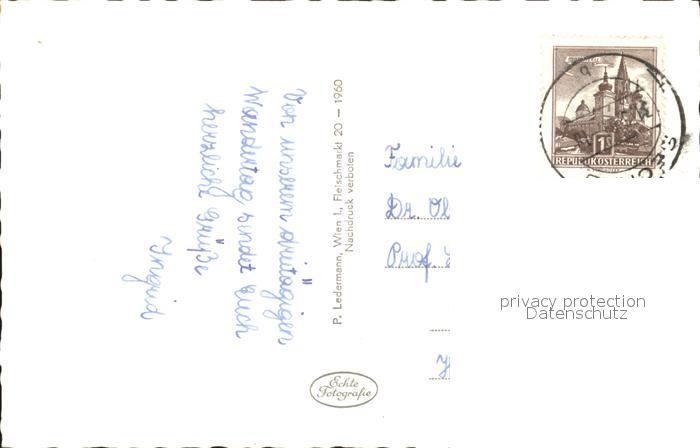 Von unserem dreitägigen
Wandertag sendet Euch
herzliche Grüße
Ingrid
P. Ledermann, Wien I., Fleischmarkt 20 — 1960
Nachdruck verboten
Echte
Fotografie
REPUBLIK ÖSTERREICH
1S
Familie
Dr. Ol
Prof.
privacy protection
Datenschutz